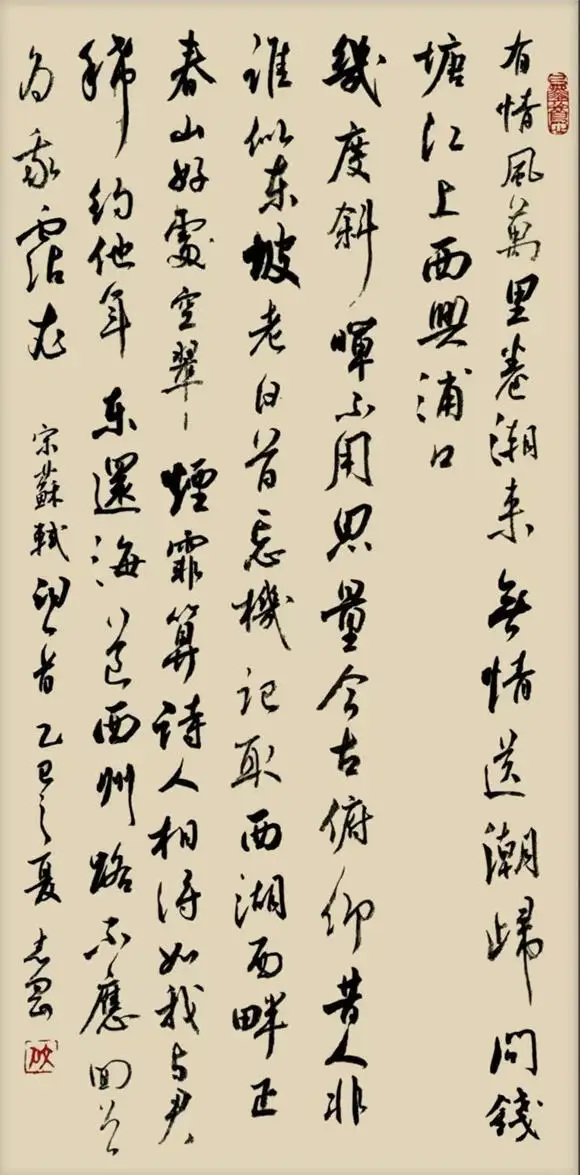 有情風萬里卷潮來無情送潮歸問錢
塘江上西興浦口
幾度斜暉不用思量今古俯仰昔人非
誰似東坡老白首忘機記取西湖西畔正
春山好處空翠煙霏算詩人相得如我與君
稀約他年東還海道西州路不應回首
為我霑衣 宋蘇軾詞一首乙巳之夏志